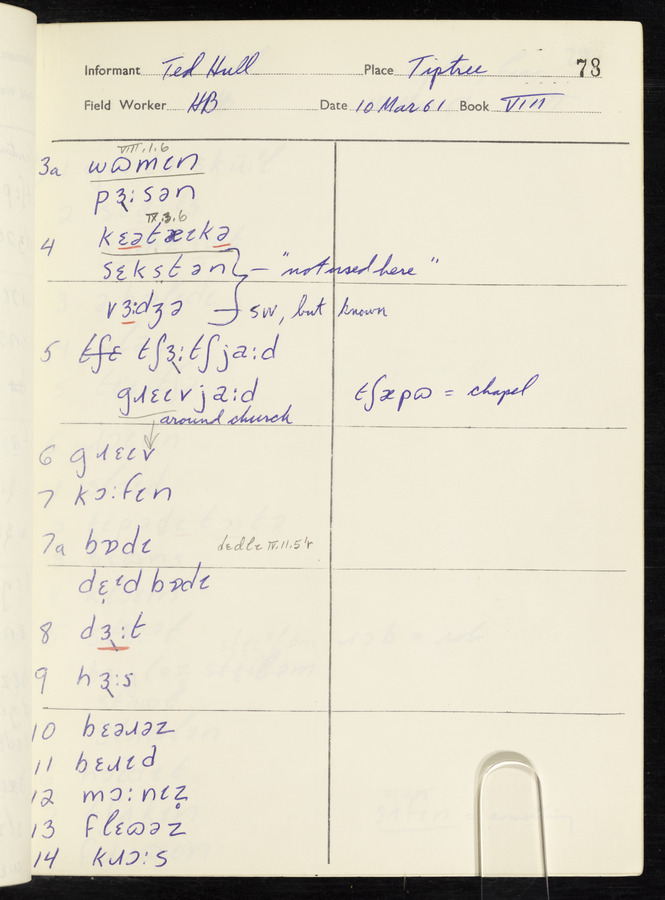 Informant Ted Hull Place Tiptree 73
Field Worker HB Date 10 Mar 61 Book VIII
VIII.1.6
3a wɷmɩn
pɜ:sən
IX.3.6
4 kɛətæɪkə
sɛkstən } — "not used here"
vɜ:dʒə } sw, but known
5 tʃɛ tʃɜ:tʃja:d
gɹɛɩvja:d tʃæpɷ = chapel
around church
6 gɹɛɩv
7 kɔ:fɩn
7a bɒdɩ dɛdlɩ IV.11.5'r
dɛɩd bɒdɩ
8 dɜ:t
9 hɜ:s
10 bɛəɹəz
11 bɛɹɩd
12 mɔ:nɩz̥
13 flɛɷəz
14 kɹɔ:s